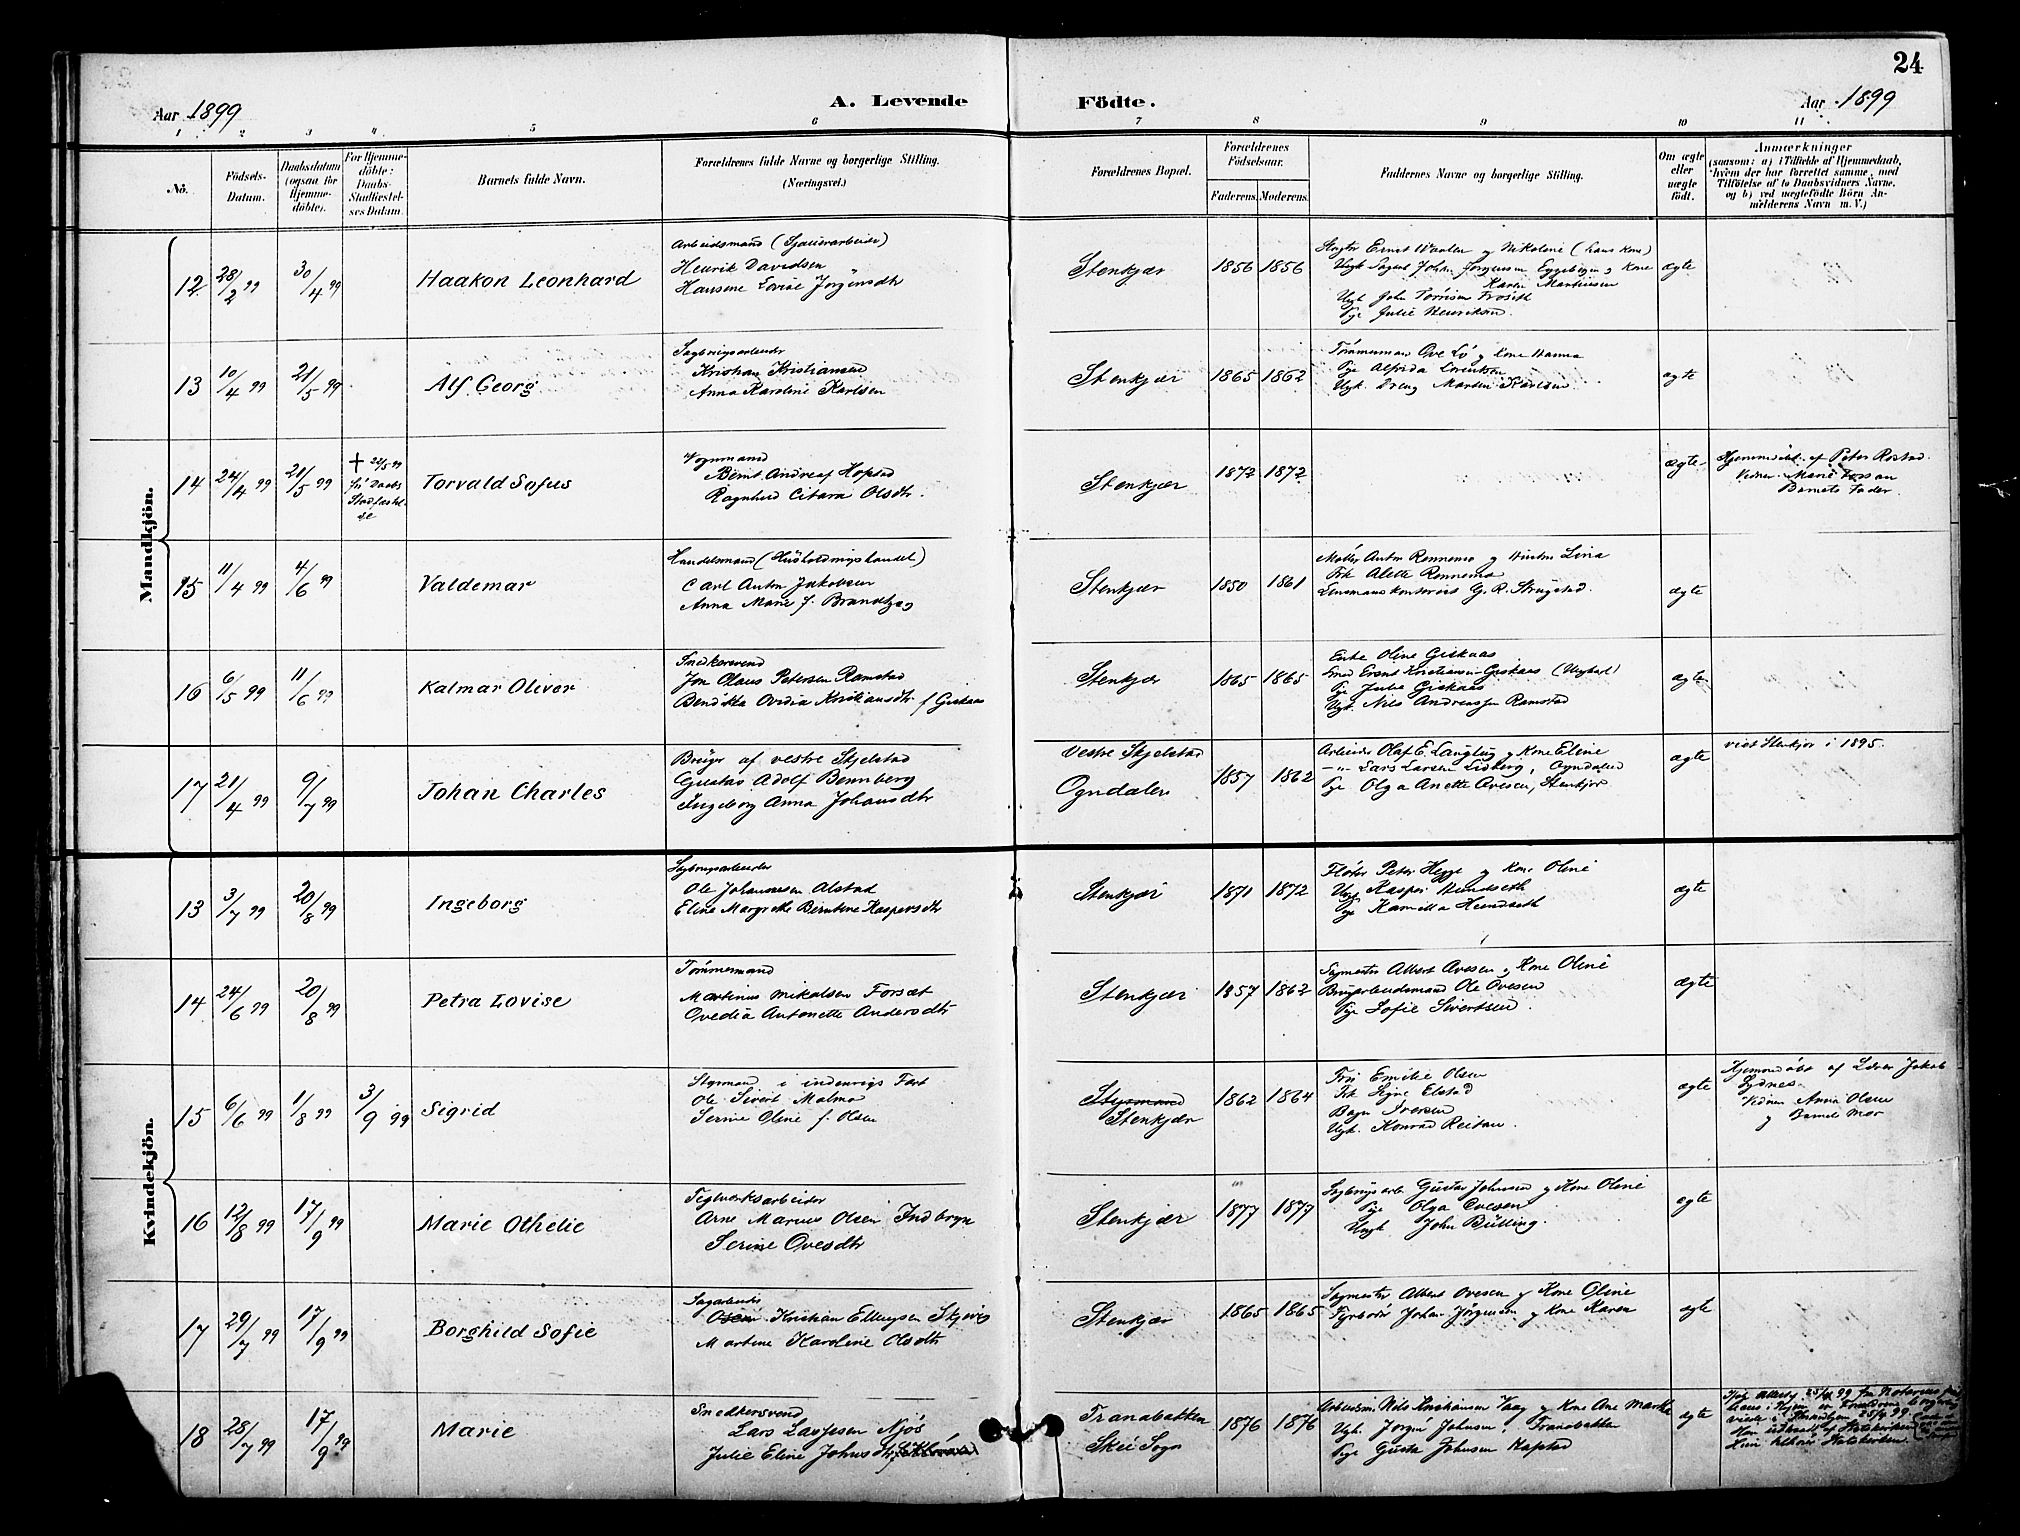 24
Aar 1899
A. Levende Födte.
Aar 1899
1 2 3 4 5 6 7 8 9 10 11
No.
Födsels-Datum.
Daabsdatum (ogsaa for Hjemme-döbte).
For Hjemme-döbte: Daabs-Stadfæstel-ses Datum.
Barnets fulde Navn.
Forældrenes fulde Navne og borgerlige Stilling. (Næringsvei.)
Forældrenes Bopæl.
Forældrenes Födselsaar.
Faderens. Moderens.
Faddernes Navne og borgerlige Stilling.
Om ægte eller uægte födt.
Anmærkninger
(saasom: a) i Tilfælde af Hjemmedaab,
hvem der har forrettet samme, med
Tilföielse af to Daabsvidners Navne,
og b) ved uægtefödte Börn An-
melderens Navn m. V.)
Mandkjön.
12 28/2 99 30/4 99 Haakon Leonhard
Arbeidsmand (Sjauerarbeide)
Henrik Davidsen
Hansine Lovise Jörgensdtr
Stenkjær 1856 1856
Ernst Waalen og Nikoline (hans Kone)
Johan Jörgensen Eggebogen og Kone
Karen Martinsen
Ugk. John Törrisen
Pge Julie Henriksen
ægte
13 10/4 99 21/5 99 Alf Georg
Sagbrugsarbeider
Kristian Kristiansen
Anna Karoline Karlsen
Stenkjær 1865 1862
Tömmermand Ove Lö og Kone Hanna
Pge Alfrida
Ugk. Dreng Morten
ægte
14 24/4 99 21/5 99
+ 22/5 99 för Daabs Stadfæstelse
Torvald Sofus
Vognmand
Bernt Andreas Hopstad
Ragnhild Citara Olsdtr.
Stenkjær 1872 1872
ægte
Hjemmedöbt af Peter Rostad.
Vidner Marie
Barnets Fader.
15 11/4 99 4/6 99 Valdemar
Handelsmand (Husholdningshandel)
Carl Anton Jakobsen
Anna Marie f. Brandtzæg
Stenkjær 1850 1861
Möller Anton Rennemo og Hustru Lina
Frk Alette Rennemo
Lensmandskontorist G. R. Strugstad.
ægte
16 6/5 99 11/6 99 Kalmar Oliver
Snedkersvend
Jon Olaus Petersen Ramstad
Bendikka Ovidia Kristiansdtr f. Giskaas
Stenkjær 1865 1865
Enke Oline Giskaas
Smed Ernst Kristiansen Giskaas (Ungkarl)
Pge Julie Giskaas
Ugk. Nils Andreassen Ramstad
ægte
17 21/4 99 9/7 99 Johan Charles
Bruger af vestre Skjelstad
Gustav Adolf Bennberg
Ingeborg Anna Johansdtr
Vestre Skjelstad
Ogndalen
1857 1862
Arbeider Olaf E. Langlug og Kone Eline
-"- Lars Larsen Lidberg, Ogndalen
Pge Olga Anette Ovesen, Stenkjær.
ægte
viet Stenkjær i 1895.
Kvindekjön.
13 3/7 99 20/8 99 Ingeborg
Sagbrugsarbeider
Ole Johannesen Alstad
Eline Margrethe Berntine Kaspersdtr
Stenkjær 1871 1872
Flöter Peter Hegge og Kone Oline
Ugk Kasper Hundseth
Pge Kamilla Hundseth
ægte
14 24/6 99 20/8 99 Petra Lovise
Tömmermand
Martinus Mikalsen Forset
Ovedia Antonette Andersdtr
Stenkjær 1857 1862
Sagmester Albert Ovesen og Kone Oline
Brugarbeidsmand Ole Ovesen
Pge Sofie Sivertsen.
ægte
15 6/6 99 1/8 99 3/9 99 Sigrid
Styrmand i indenrigs Fart
Ole Sivert Malmo
Serine Oline f. Olsen
Styrmand
Stenkjær
1862 1864
Fru Emilie Olsen
Frk Signe Elstad
Iversen
Ugk. Konrad Reitan.
ægte
Hjemmedöbt af Lærer Jakob
Sydnes.
Vidner Anna Olsen
og Barnets Mor
16 12/8 99 17/9 99 Marie Othelie
Teglverksarbeider
Arne Marius Olsen Indbryn
Serine Ovesdtr
Stenkjær 1877 1877
Sagbrugsarb. Gustav Johnsen og Kone Oline
Pge Olga Ovesen
Ungk. John Bülling.
ægte
17 29/7 99 17/9 99 Borghild Sofie
Sagarbeider
Kristian Ellingsen Skjevig
Martine Karoline Olsdtr
Stenkjær 1865 1865
Sagmester Albert Ovesen og Kone Oline
Fyrböter Johan Jörgensen og Kone Karen
ægte
18 28/7 99 17/9 99 Marie
Snedkersvend
Lars Larsen Njös
Julie Eline Johnsdtr
Tranabakken
Skei Sogn
1876 1876
Arbeidsm. Nils Kristiansen Vaag og Kone Ane Martha
Ugk. Jörgen Johnsen, Tranabakken
Pge Gusta Johnsen Kapstad
ægte